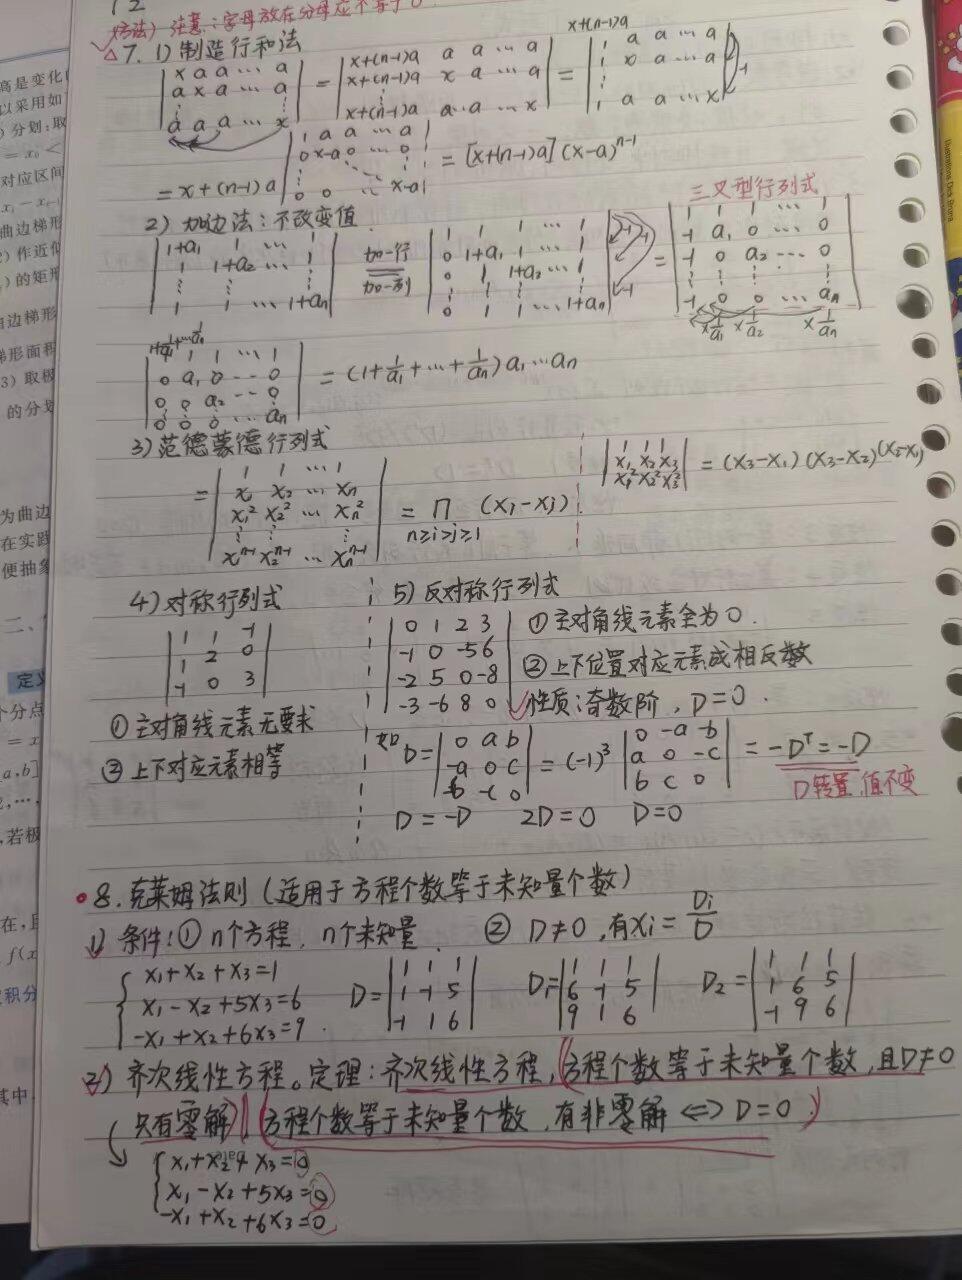 (方法) 注意:字母放在分母应不等于0
7. 1) 制造行和法
|x a a … a|
|a x a … a|
|⋮ ⋮|
|a a a … x|
= |x+(n-1)a a a … a|
|x+(n-1)a x a … a|
|⋮|
|x+(n-1)a a … a … x|
= x+(n-1)a
|1 a a … a|
|1 x a … a|
|⋮|
|1 a a … x| -1
= x+(n-1)a |1 a a … a|
|0 x-a 0 … 0|
|⋮|
|0 0 … x-a| = [x+(n-1)a](x-a)ⁿ⁻¹
2) 加边法:不改变值.
|1+a₁ 1 … 1|
|1 1+a₂ … 1|
|⋮ ⋮ ⋮|
|1 1 … 1+aₙ|
加一行
加一列
|1 1 1 … 1|
|0 1+a₁ 1 … 1|
|0 1 1+a₂ … 1|
|⋮ ⋮|
|0 1 1 … 1+aₙ| -1 -1 -1
三叉型行列式
= |1 1 1 … 1|
|-1 a₁ 0 … 0|
|-1 0 a₂ … 0|
|⋮ ⋮ ⋮ ⋮|
|-1 0 0 … aₙ|
×1/a₁ ×1/a₂ ×1/aₙ
1+1/a₁+…1/aₙ
| 1 1 … 1|
|0 a₁ 0 … 0|
|0 0 a₂ … 0|
|0 0 0 … aₙ| = (1+1/a₁+…+1/aₙ)a₁…aₙ
3) 范德蒙德行列式
= |1 1 … 1|
|x₁ x₂ … xₙ|
|x₁² x₂² … xₙ²|
|⋮ ⋮ ⋮|
|xⁿ⁻¹ x₂ⁿ⁻¹ … xₙⁿ⁻¹| = Π (xᵢ-xⱼ)
n≥i>j≥1
|1 1 1|
|x₁ x₂ x₃|
|x₁² x₂² x₃²| = (x₃-x₁)(x₃-x₂)(x₂-x₁)
4) 对称行列式
|1 1 -1|
|1 2 0|
|-1 0 3|
① 主对角线元素无要求
② 上下对应元素相等
5) 反对称行列式
|0 1 2 3|
|-1 0 -5 6|
|-2 5 0 -8|
|-3 -6 8 0|
① 主对角线元素全为0.
② 上下位置对应元素成相反数
性质:奇数阶,D=0.
如 D= |0 a b|
|-a 0 c|
|-b -c 0| = (-1)³ |0 -a -b|
|a 0 -c|
|b c 0| = -Dᵀ=-D
D转置,值不变
D=-D 2D=0 D=0
8. 克莱姆法则(适用于方程个数等于未知量个数)
1) 条件:① n个方程,n个未知量. ② D≠0,有xᵢ=Dᵢ/D
x₁+x₂+x₃=1
x₁-x₂+5x₃=6
-x₁+x₂+6x₃=9.
D= |1 1 1|
|1 -1 5|
|-1 1 6|
D₁= |1 1 1|
|6 -1 5|
|9 1 6|
D₂= |1 1 1|
|1 6 5|
|-1 9 6|
2) 齐次线性方程。定理:齐次线性方程,(方程个数等于未知量个数,且D≠0
只有零解)(方程个数等于未知量个数,有非零解⇔D=0.)
x₁+x₂+x₃=0
x₁-x₂+5x₃=0
-x₁+x₂+6x₃=0
高是变化
以采用如
)分划:取
= x₀ <
对应区间
曲边梯形
)作近似
)的矩形
曲边梯形
梯形面积
3)取极
的分划
为曲边
在实践
便抽象
二、
定义
个分点
= x
a,b]
,若极
在,且
f(x
定积分
其中
Illustrations Dick Bruna